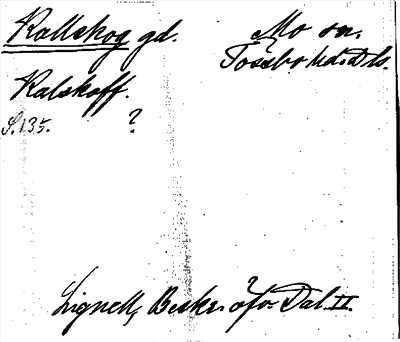 Kallskog gd. Mo sn.
Tössbo hd. Dls.
Kalskoff.
S. 135. ?
Lignell, Beskr. öfv. Dal. II.